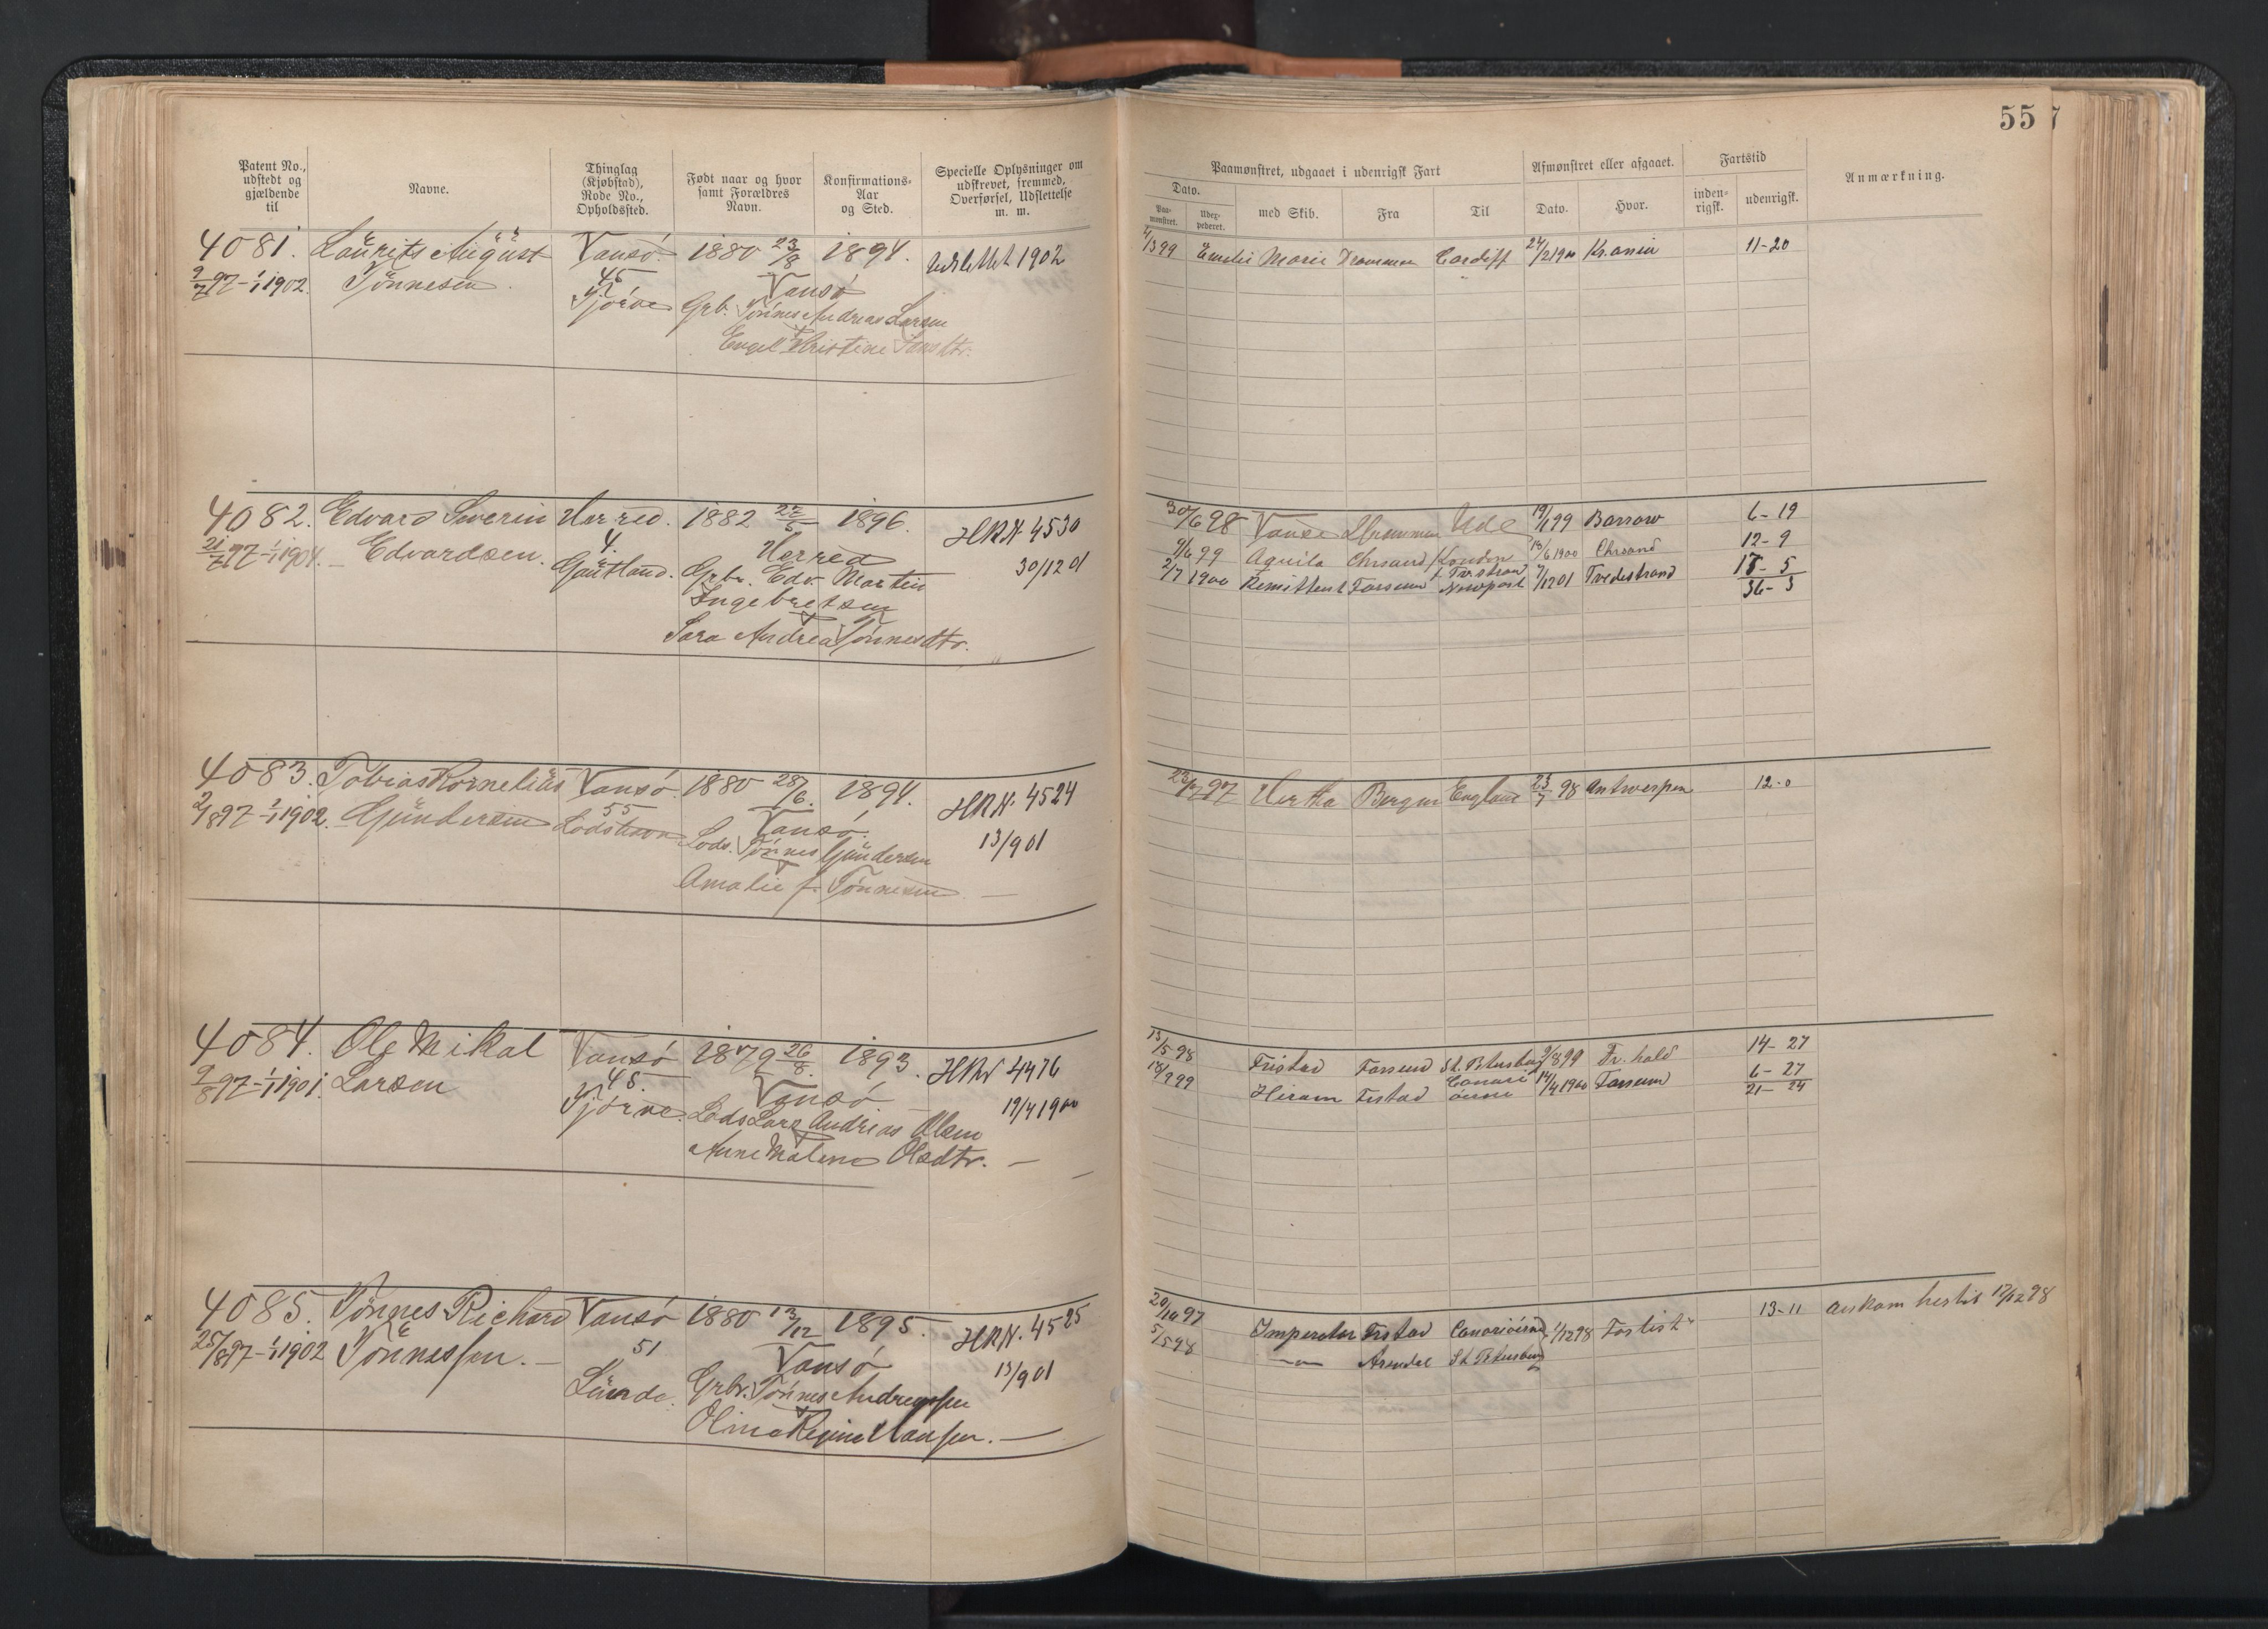 557
Patent No., udstedt og gjældende til
Navne.
Thinglag (Kjøbstad), Rode No., Opholdssted.
Født naar og hvor samt Forældres Navn.
Konfirmations-Aar og Sted.
Specielle Oplysninger om udskrevet, fremmed, Overførsel, Udslettelse m. m.
Paamønstret, udgaaet i udenrigsk Fart
Afmønstret eller afgaaet.
Fartstid
Anmærkning.
Dato.
Paa-mønstret.
med Skib.
Fra
Til
Dato.
Hvor.
inden-rigsk.
udenrigsk.
4081. Laurits August Vansø. 1880 23/8 1894. Udslettet 1902
9/7 97 - 1/1 1902. Tønnesen 45 Vansø
Tjørve Grb. Tønnes Andreas Larsen
Engel Kristine Hansdtr.
4/3 99 Emilie Marie Drammen Cardiff 24/2 1900 Kr.ania 11-20
4082. Edvard Severin Herred. 1882 22/5 1896. HRN. 4530
21/7 97 - 1/1 1904. Edvardsen. 4. Herred 30/12 01
Gaütland. Grbr. Edv. Martin
Ingebretsen
Sara Andrea Tønnesdtr.
30/6 98 Vanse Drammen Ude 19/1 99 Barrow 6-19
9/6 99 Aquila Chrsand London 18/6 1900 Chrsand 12-9
2/7 1900 Remittent Farsund Newport 7/12 01 Tvedestrand 17-5
36-3
4083. Tobias Kornelius Vansø. 1880 28/6. 1894. HRN. 4524
2/8 97 - 1/1 1902. Gundersen 55 Vansø. 13/9 01
Lodshavn Lods. Tønnes Gundersen
Amalie f. Tønnesen
23/7 97 Hertha Bergen England 23/7 98 Antwerpen 12-0
4084. Ole Mikal Vansø 1879 26/8. 1893. HRN 4476
9/8 97 - 1/1 1901. Larsen 45. Vansø 19/4 1900
Tjørve. Lods Lars Andreas Olsen
Anne Malene Olsdtr.
13/5 98 Fristad Farsund St. Petersburg 9/8 99 Fr. hald 14-27
18/9 99 Hiram Fristad Canariøerne 14/4 1900 Farsund 6-27
21-24
4085. Tønnes Richard Vansø 1880 13/12 1895. HRN. 4525
25/8 97 - 1/1 1902 Tønnessen. 51 Vansø 13/9 01
Lunde. Grbr. Tønnes Andreassen
Olina Regine Hansen.
20/10 97 Imperator Fristad Canariøerne 1/12 98 13-11 Ankom hertil 12/12 98
5/5 98 Arendal St. Petersburg